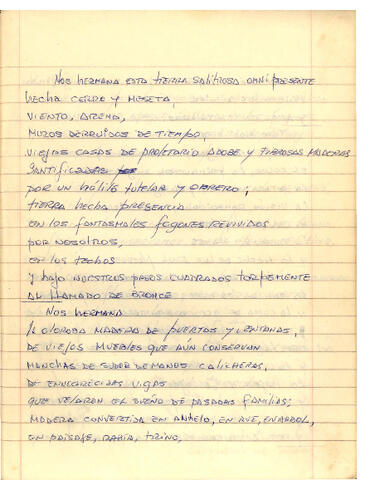 Nos hermana esta tierra salitrosa omnipresente
hecha cerro y meseta,
viento, arena,
muros derruidos de tiempo,
viejas casas de proletario adobe y maderas
santificadas
por un hálito tutelar y obrero;
tierra hecha presencia
en los fantasmales fogones revividos
por nosotros,
en los techos
y bajo nuestros pasos cuadrados torpemente
al llamado de bronce
Nos hermana
la olorosa madera de puertas y ventanas,
de viejos muebles que aún conservan
manchas de sudor de manos calicheras,
de ennegrecidas vigas
que velaron el sueño de pasadas familias;
madera convertida en anhelo, en ave, en árbol,
en paisaje, bahía, trino,